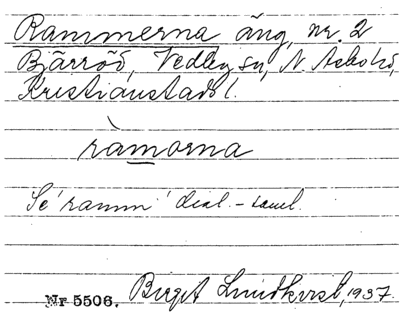 Rammerna äng, nr. 2
Bjärröd, Vedby sn, N. Åsbo hd,
Kristianstads l.
ràmorna
Se 'ramm' dial. - saml.
Nr 5506. Birgit Lindkvist, 1937.